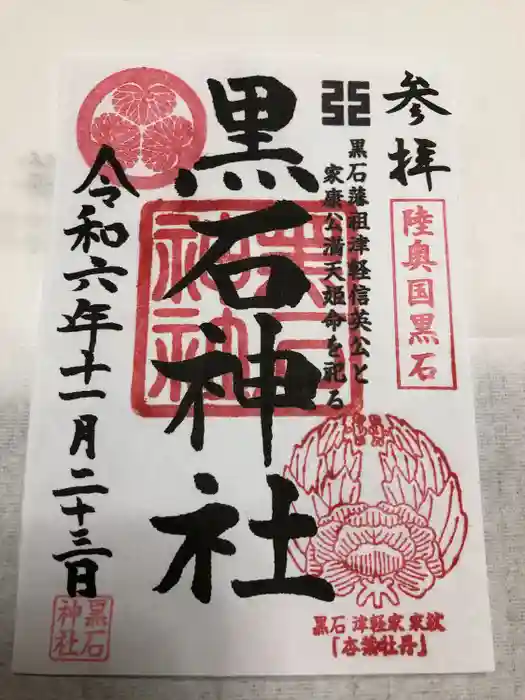 参拝
陸奥国黒石
黒石藩祖津軽信英公と
家康公満天姫命を祀る
黒石神社
黒石
神社
令和六年十一月二十三日
黒石
神社
黒石 津軽家 家紋
「杏葉牡丹」